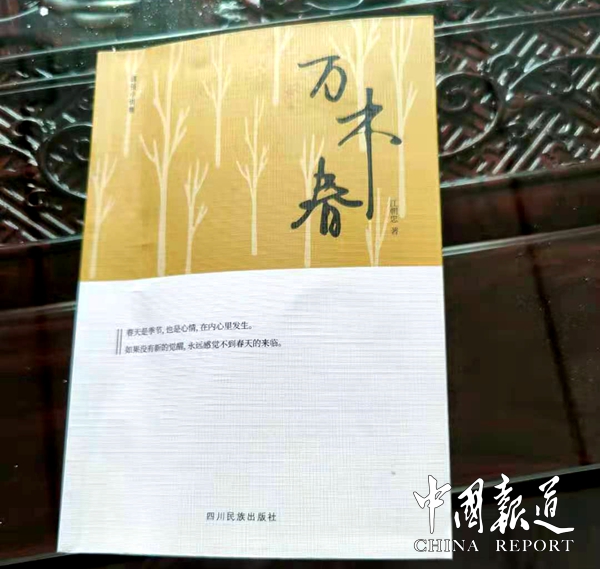 万木春
著
春天是季节,也是心情,在内心里发生。
如果没有新的觉醒,永远感觉不到春天的来临。
四川民族出版社
中國報道
CHINA REPORT